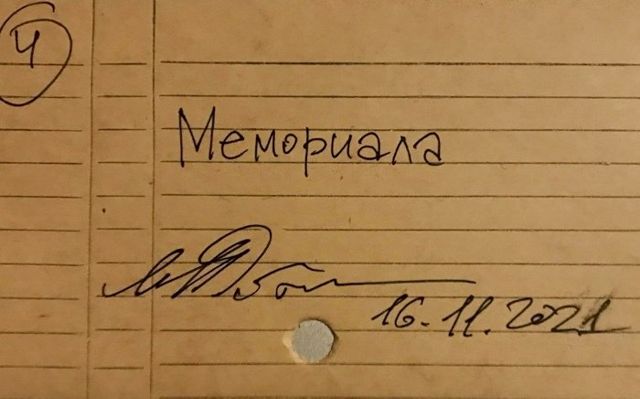 4
Мемориала
16.11.2021